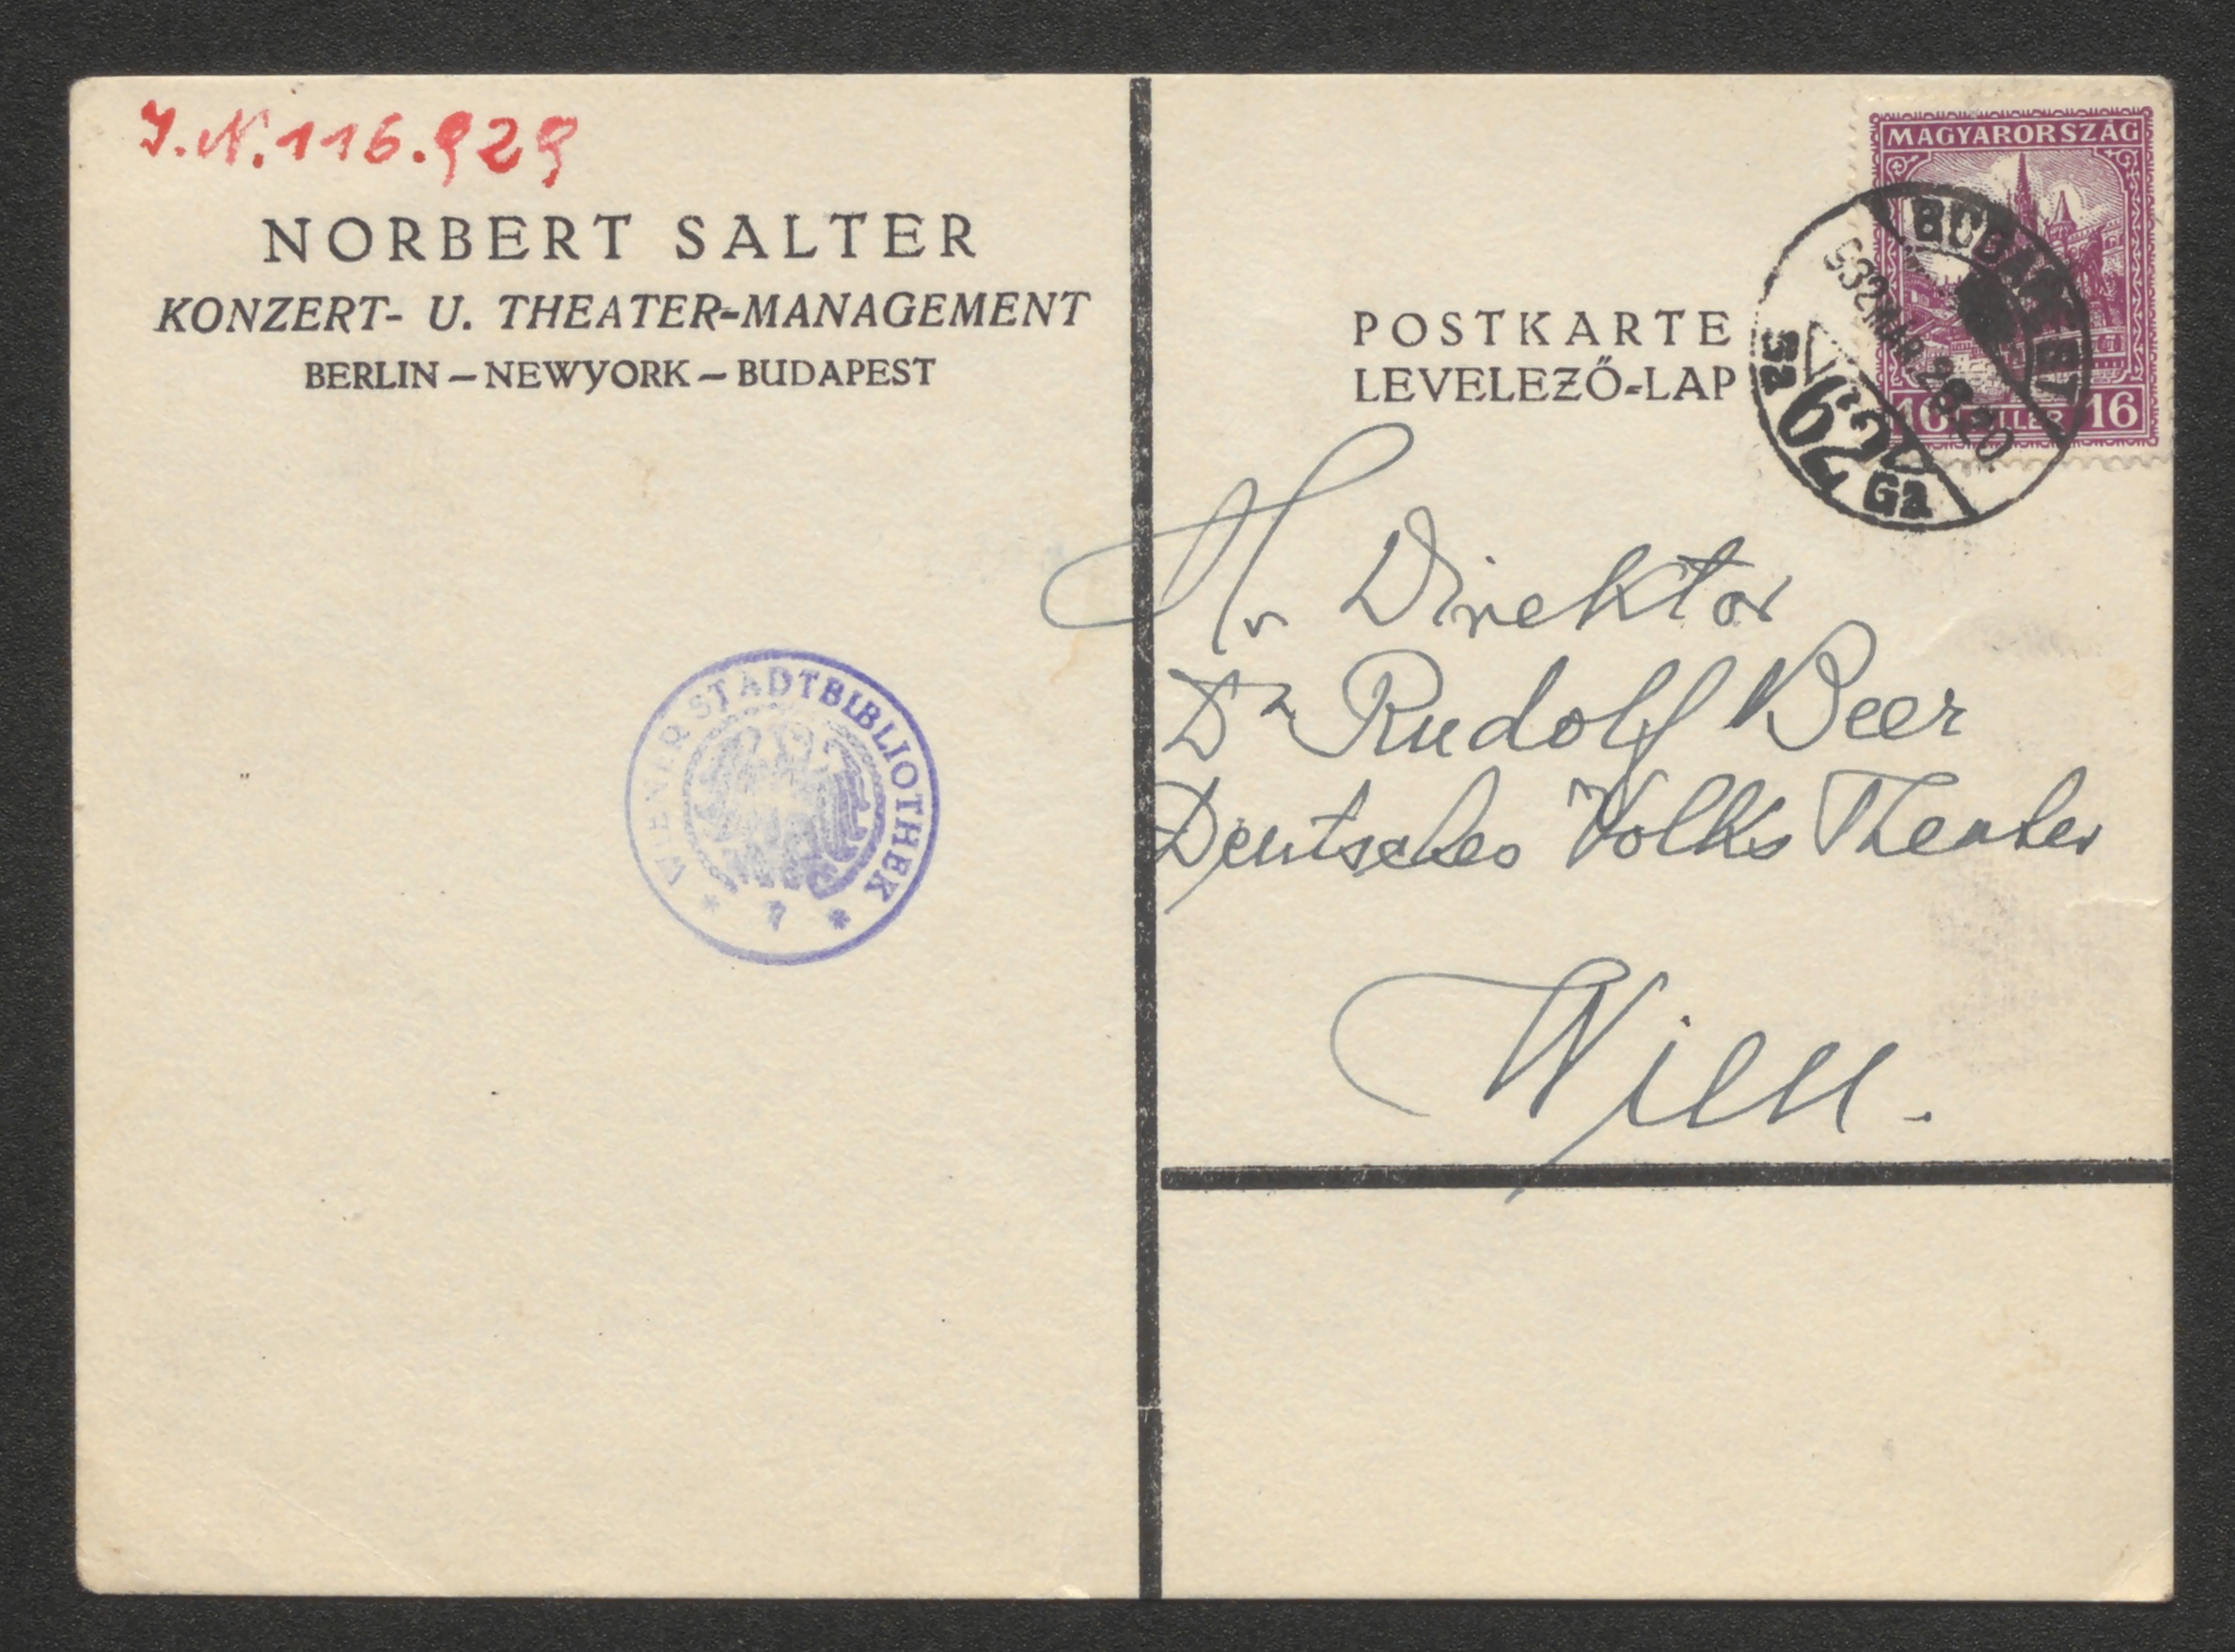 J.N. 116.929
NORBERT SALTER
KONZERT- U. THEATER-MANAGEMENT
BERLIN – NEWYORK – BUDAPEST
WIENER STADTBIBLIOTHEK
POSTKARTE
LEVELEZŐ-LAP
MAGYARORSZÁG
16 FILLÉR 16
BUDAPEST
932 MÁR. 28. 20
62
Sa
Ga
Hr Direktor
Dr Rudolf Beer
Deutsches Volks Theater
Wien.